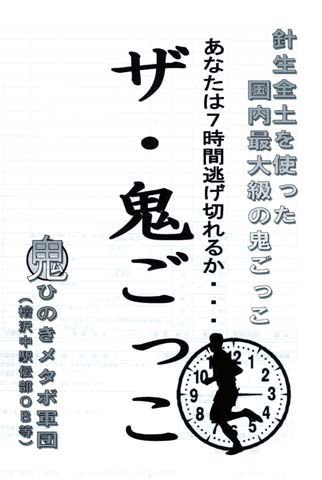 針生全土を使った
国内最大級の鬼ごっこ
あなたは7時間逃げ切れるか・・・
ザ・鬼ごっこ
鬼 ひのきメタボ軍団
(檜沢中駅伝部OB等)
12
1
2
3
4
5
6
7
8
9
10